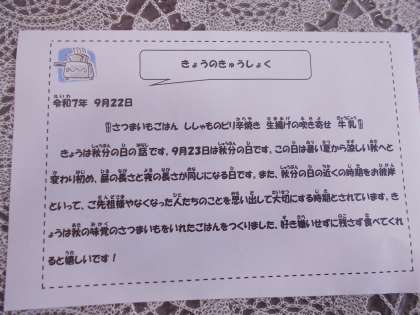 きょうのきゅうしょく
令和7年 9月22日
さつまいもごはん ししゃものピリ辛焼き 生揚げの吹き寄せ 牛乳
きょうは秋分の日の話です。9月23日は秋分の日です。この日は暑い夏から涼しい秋へと
変わり初め、昼の長さと夜の長さが同じになる日です。また、秋分の日の近くの時期をお彼岸
といって、ご先祖様やなくなった人たちのことを思い出して大切にする時期とされています。き
ょうは秋の味覚のさつまいもをいれたごはんをつくりました。好き嫌いせずに残さず食べてくれ
ると嬉しいです!